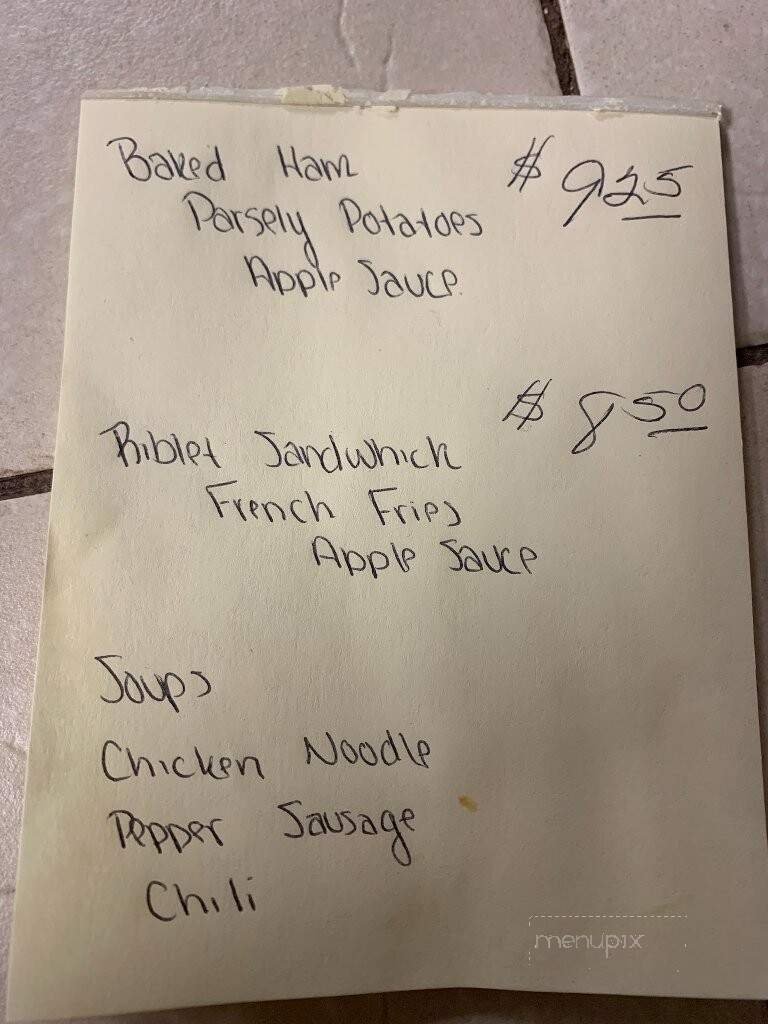 Baked Ham $ 9 25
Parsely Potatoes
Apple Sauce
$ 8 50
Riblet Sandwhich
French Fries
Apple Sauce
Soups
Chicken Noodle
Pepper Sausage
Chili
menupix